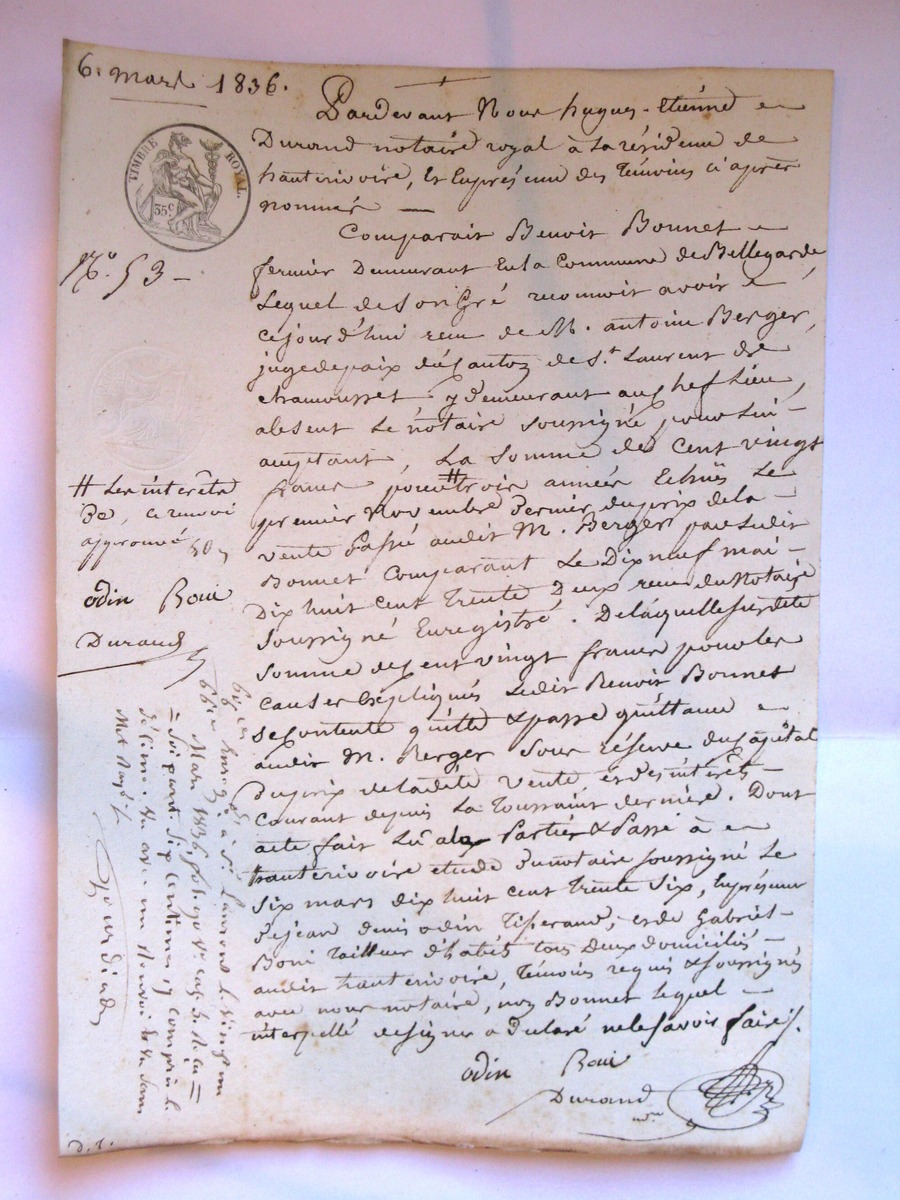 6. Mars 1836.
TIMBRE ROYAL.
35c
Pardevant Nous hugues-étiénne
Durand notaire royal à la résidence de
hauterivoire, Et En présence des témoins ci après
nommés
No. 53
Comparait Benoit Bonnet
fermier Demeurant En la Commune de Bellegarde
Lequel de son Gré reconnoit avoir
cejourd'hui recu de M. antoine Berger,
juge de paix du Canton de St. Laurent de
chamousset y demeurant au chef Lieu,
absent Le notaire soussigné pour Lui
acceptant, La somme de cent vingt
francs pour # trois années Echues Le
premier Novembre Dernier du prix de la
vente Passé audit M. Berger par Ledit
Bonnet Comparant Le Dix neuf mai
Dix huit cent trente Deux recu du Notaire
Soussigné Enregistré. De laquelle susdite
somme de Cent vingt francs pour les
causes Expliqués Ledit Benoit Bonnet
se contente quitte & passe quittance
audit M. Berger sous réserve du Capital
Du prix de ladite vente et des intérêts
Courant depuis La Toussaint dernière. Dont
acte fait Lu aux Parties & Passé à
hauterivoire etude du notaire soussigné Le
Six mars dix huit cent trente Six, En présence
de jean denis odin Tisserand, et de Gabriel
Boni Tailleur d'habits tous Deux domiciliés
audit hauterivoire, Témoins requis & soussignés
avec nous notaire, non Bonnet Lequel
interpellé de signer a Déclaré ne le savoir faire ./.
odin Boni
Durand
# Les interêts
De, ce renvoi
approuvé
odin Boni
Durand
à St Laurent le vingt un
Mars 1836, fo. 90
dix centimes y compris le
décime
d.t.